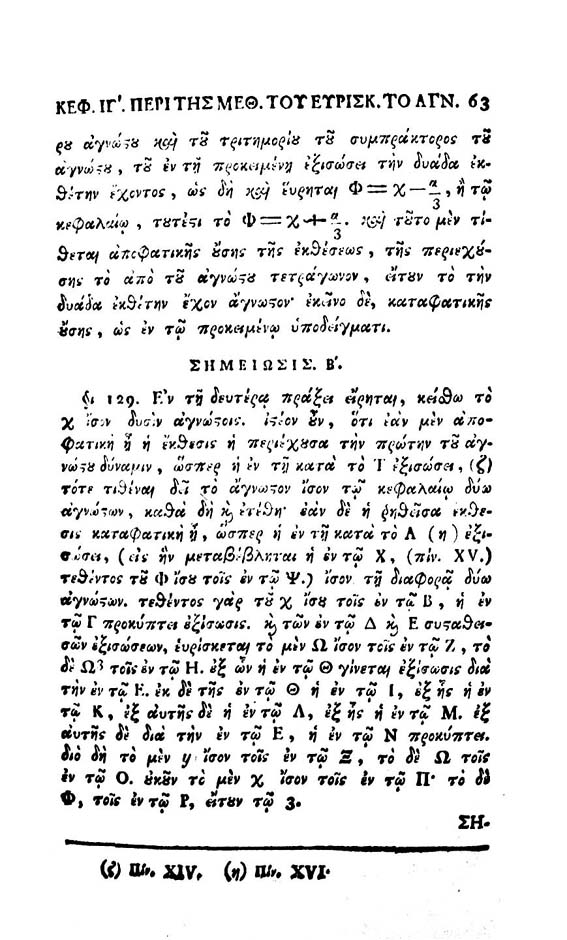 ΚΕΦ. ΙΓ'. ΠΕΡΙ ΤΗΣ ΜΕΘ. ΤΟΥ ΕΥΡΙΣΚ. ΤΟ ΑΓΝ. 63
ρου ἀγνώστου καὶ τοῦ τριτημορίου τοῦ συμπράκτορος τοῦ
ἀγνώστου, τοῦ ἐν τῇ προκειμένῃ ἐξισώσει τὴν δυάδα ἐκ-
θέτην ἔχοντος, ὡς δὴ καὶ εὕρηται Φ = χ — α/3, ἢ τῷ
κεφαλαίῳ, τουτέστι τὸ Φ = χ + α/3. καὶ τοῦτο μὲν τί-
θεται ἀποφατικῆς οὔσης τῆς ἐκθέσεως, τῆς περιεχού-
σης τὸ ἀπὸ τοῦ ἀγνώστου τετράγωνον, εἴτουν τὸ τὴν
δυάδα ἐκθέτην ἔχον ἄγνωστον· ἐκεῖνο δὲ, καταφατικῆς
οὔσης, ὡς ἐν τῷ προκειμένῳ ὑποδείγματι.
ΣΗΜΕΙΩΣΙΣ. Β'.
§. 129. Ἐν τῇ δευτέρᾳ πράξει εἴρηται, κείσθω τὸ
χ ἴσον δυσὶν ἀγνώστοις. ἰστέον οὖν, ὅτι ἐὰν μὲν ἀπο-
φατικὴ ᾖ ἡ ἔκθεσις ἡ περιέχουσα τὴν πρώτην τοῦ ἀγ-
νώστου δύναμιν, ὥσπερ ἡ ἐν τῇ κατὰ τὸ Τ ἐξισώσει, (ζ)
τότε τιθέναι δεῖ τὸ ἄγνωστον ἴσον τῷ κεφαλαίῳ δύω
ἀγνώστων, καθὰ δὴ καὶ ἐτέθη· ἐὰν δὲ ἡ ῥηθεῖσα ἔκθε-
σις καταφατικὴ ᾖ, ὥσπερ ἡ ἐν τῇ κατὰ τὸ Λ (η) ἐξι-
σώσει, (εἰς ἣν μεταβέβληται ἡ ἐν τῷ Χ, (πίν. XV.)
τεθέντος τοῦ Φ ἴσου τοῖς ἐν τῷ Ψ.) ἴσον τῇ διαφορᾷ δύω
ἀγνώστων. τεθέντος γὰρ τοῦ χ ἴσου τοῖς ἐν τῷ Β, ἡ ἐν
τῷ Γ προκύπτει ἐξίσωσις. καὶ τῶν ἐν τῷ Δ καὶ Ε συσταθει-
σῶν ἐξισώσεων, εὑρίσκεται τὸ μὲν Ω ἴσον τοῖς ἐν τῷ Ζ, τὸ
δὲ Ω³ τοῖς ἐν τῷ Η. ἐξ ὧν ἡ ἐν τῷ Θ γίνεται ἐξίσωσις διὰ
τὴν ἐν τῷ Ε. ἐκ δὲ τῆς ἐν τῷ Θ ἡ ἐν τῷ Ι, ἐξ ἧς ἡ ἐν
τῷ Κ, ἐξ αὐτῆς δὲ ἡ ἐν τῷ Λ, ἐξ ἧς ἡ ἐν τῷ Μ. ἐξ
αὐτῆς δὲ διὰ τὴν ἐν τῷ Ε, ἡ ἐν τῷ Ν προκύπτει.
διὸ δὴ τὸ μὲν y ἴσον τοῖς ἐν τῷ Ξ, τὸ δὲ Ω τοῖς
ἐν τῷ Ο. οὐκοῦν τὸ μὲν χ ἴσον τοῖς ἐν τῷ Π· τὸ δὲ
Φ, τοῖς ἐν τῷ Ρ, εἴτουν τῷ 3.
ΣΗ-
(ζ) Πίν. XIV. (η) Πίν. XVI.